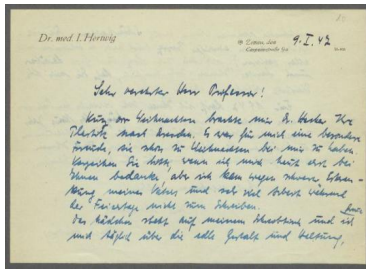 Dr. med. I. Hertwig
9. I. 42
Sehr verehrter Herr Professor!
Kurz vor Weihnachten brachte mir Dr. Ihre
nach Dresden. Es war für mich eine besondere
Freude, sie schon zu Weihnachten bei mir zu haben.
Verzeihen Sie bitte, wenn ich mich heute erst bei
Ihnen bedanke, aber ich kam wegen schwerer Erkran-
kung meines Vaters und sehr viel Arbeit während
der Feiertage nicht zum Schreiben.
das Mädchen steht auf meinem Schreibtisch und ich
mich täglich über die edle Gestalt und Haltung,